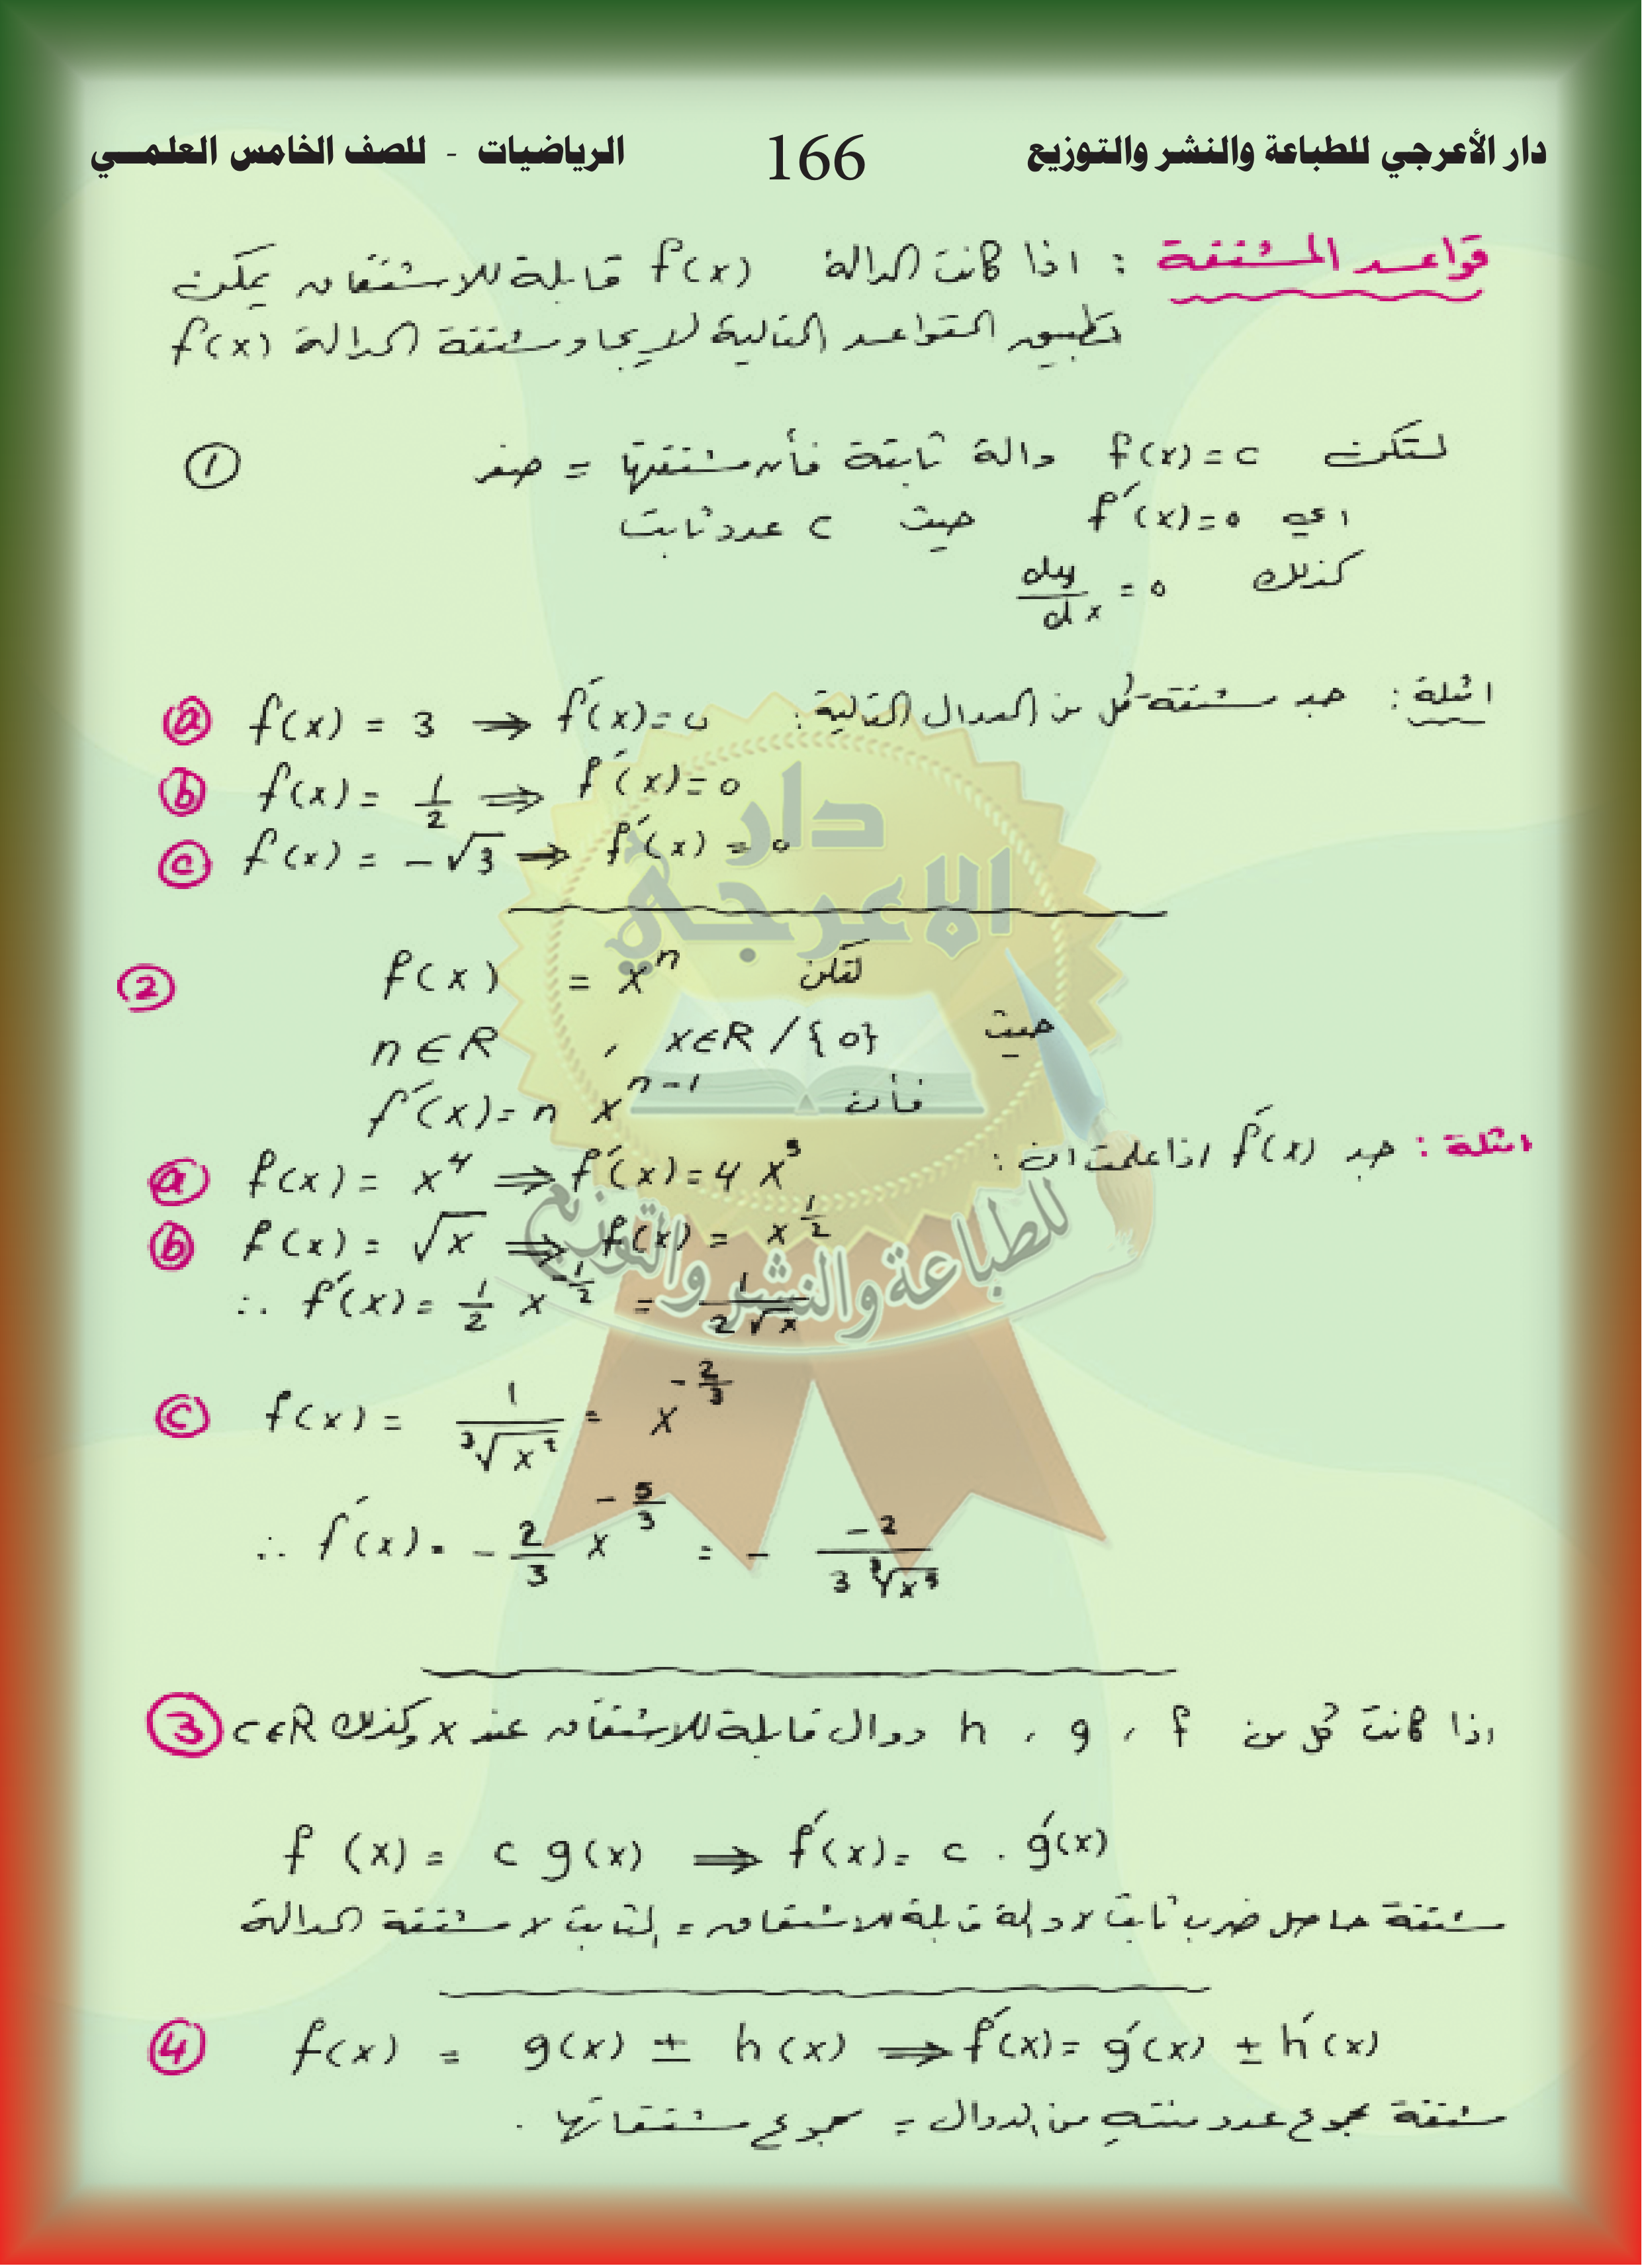 دار الأعرجي للطباعة والنشر والتوزيع 166 الرياضيات - للصف الخامس العلمي
قواعد المشتقة : اذا كانت الدالة f(x) قابلة للاشتقاق يمكن
تطبيق القواعد التالية لايجاد مشتقة الدالة f(x)
① لتكن f(x) = c دالة ثابتة فأن مشتقتها = صفر
اي f́(x) = 0 حيث c عدد ثابت
كذلك dy/dx = 0
امثلة : جد مشتقة كل من الدوال التالية :
ⓐ f(x) = 3 ⇒ f́(x) = 0
ⓑ f(x) = 1/2 ⇒ f́(x) = 0
ⓒ f(x) = -√3 ⇒ f́(x) = 0
② لتكن f(x) = xⁿ
حيث n∈R , x∈R/{0}
فأن f́(x) = n xⁿ⁻¹
امثلة : جد f́(x) اذا علمت ان :
ⓐ f(x) = x⁴ ⇒ f́(x) = 4 x³
ⓑ f(x) = √x ⇒ f(x) = x^(1/2)
∴ f́(x) = 1/2 x^(-1/2) = 1/(2√x)
ⓒ f(x) = 1/∛(x²) = x^(-2/3)
∴ f́(x) = -2/3 x^(-5/3) = - -2/(3∛(x⁵))
③ اذا كانت كل من f , g , h دوال قابلة للاشتقاق عند x وكذلك c∈R
f(x) = c g(x) ⇒ f́(x) = c . ǵ(x)
مشتقة حاصل ضرب ثابت × دالة قابلة للاشتقاق = الثابت × مشتقة الدالة
④ f(x) = g(x) ± h(x) ⇒ f́(x) = ǵ(x) ± h́(x)
مشتقة مجموع عدد منته من الدوال = مجموع مشتقاتها .
دار
الاعرجي
للطباعة والنشر والتوزيع